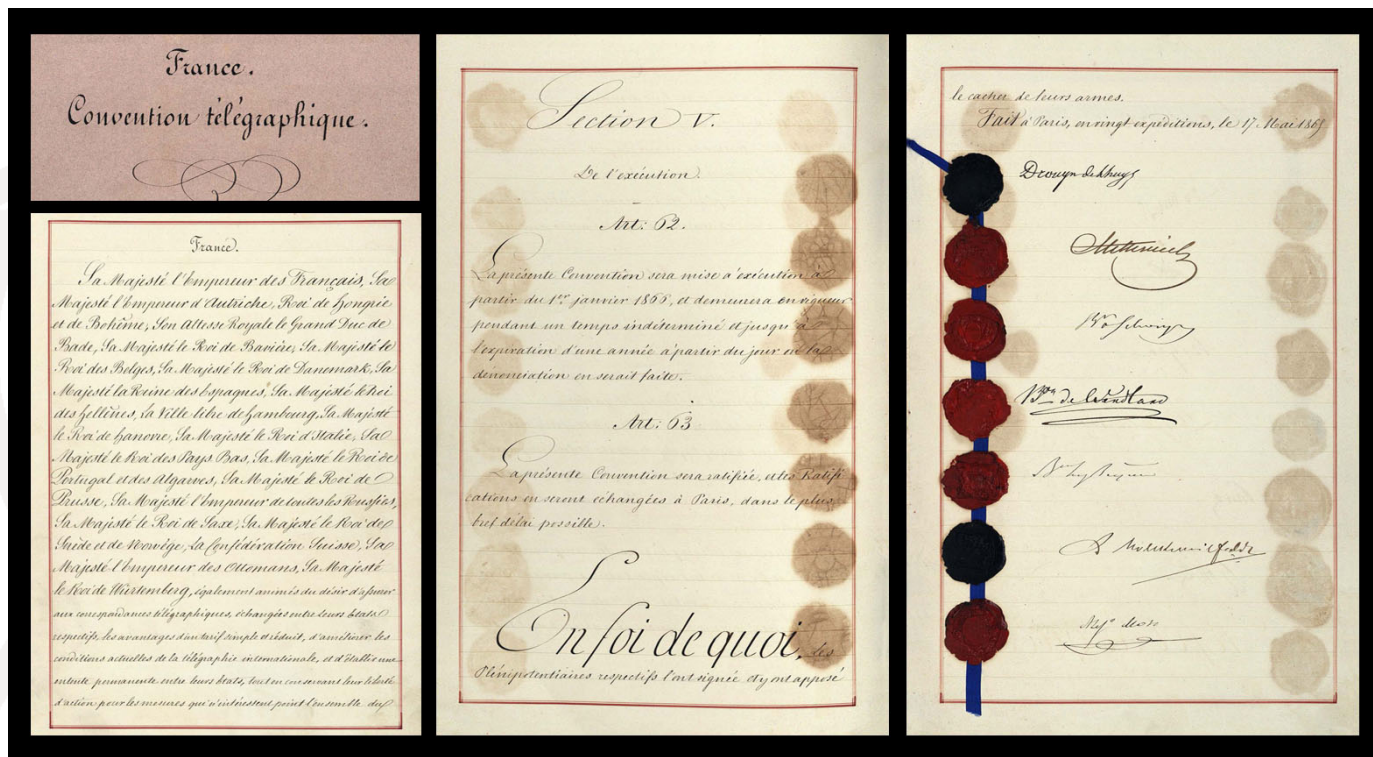 France.
Convention télégraphique.
France.
Sa Majesté l'Empereur des Français, Sa
Majesté l'Empereur d'Autriche, Roi de Hongrie
et de Bohême, Son Altesse Royale le Grand Duc de
Bade, Sa Majesté le Roi de Bavière, Sa Majesté le
Roi des Belges, Sa Majesté le Roi de Danemark, Sa
Majesté la Reine des Espagnes, Sa Majesté le Roi
des Hellènes, la Ville libre de Hambourg, Sa Majesté
le Roi de Hanovre, Sa Majesté le Roi d'Italie, Sa
Majesté le Roi des Pays Bas, Sa Majesté le Roi de
Portugal et des Algarves, Sa Majesté le Roi de
Prusse, Sa Majesté l'Empereur de toutes les Russies,
Sa Majesté le Roi de Saxe, Sa Majesté le Roi de
Suède et de Norwège, La Confédération Suisse, Sa
Majesté l'Empereur des Ottomans, Sa Majesté
le Roi de Würtemberg, également animés du désir d'assurer
aux correspondances télégraphiques, échangées entre leurs Etats
respectifs, les avantages d'un tarif simple et réduit, d'améliorer les
conditions actuelles de la télégraphie internationale, et d'établir une
entente permanente entre leurs états, tout en conservant leur liberté
d'action pour les mesures qui n'intéressent point l'ensemble du
Section V.
De l'exécution.
Art: 62.
La présente Convention sera mise à exécution à
partir du 1er janvier 1866, et demeurera en vigueur
pendant un temps indéterminé et jusqu'à
l'expiration d'une année à partir du jour où la
dénonciation en serait faite.
Art: 63
La présente Convention sera ratifiée, et les Ratifi
cations en seront échangées à Paris, dans le plus
bref délai possible.
En foi de quoi, les
Plénipotentiaires respectifs l'ont signée et y ont apposé
le cachet de leurs armes.
Fait à Paris, en vingt expéditions, le 17 Mai 1865
Drouyn de Lhuys
Metternich
Bon de Wendland